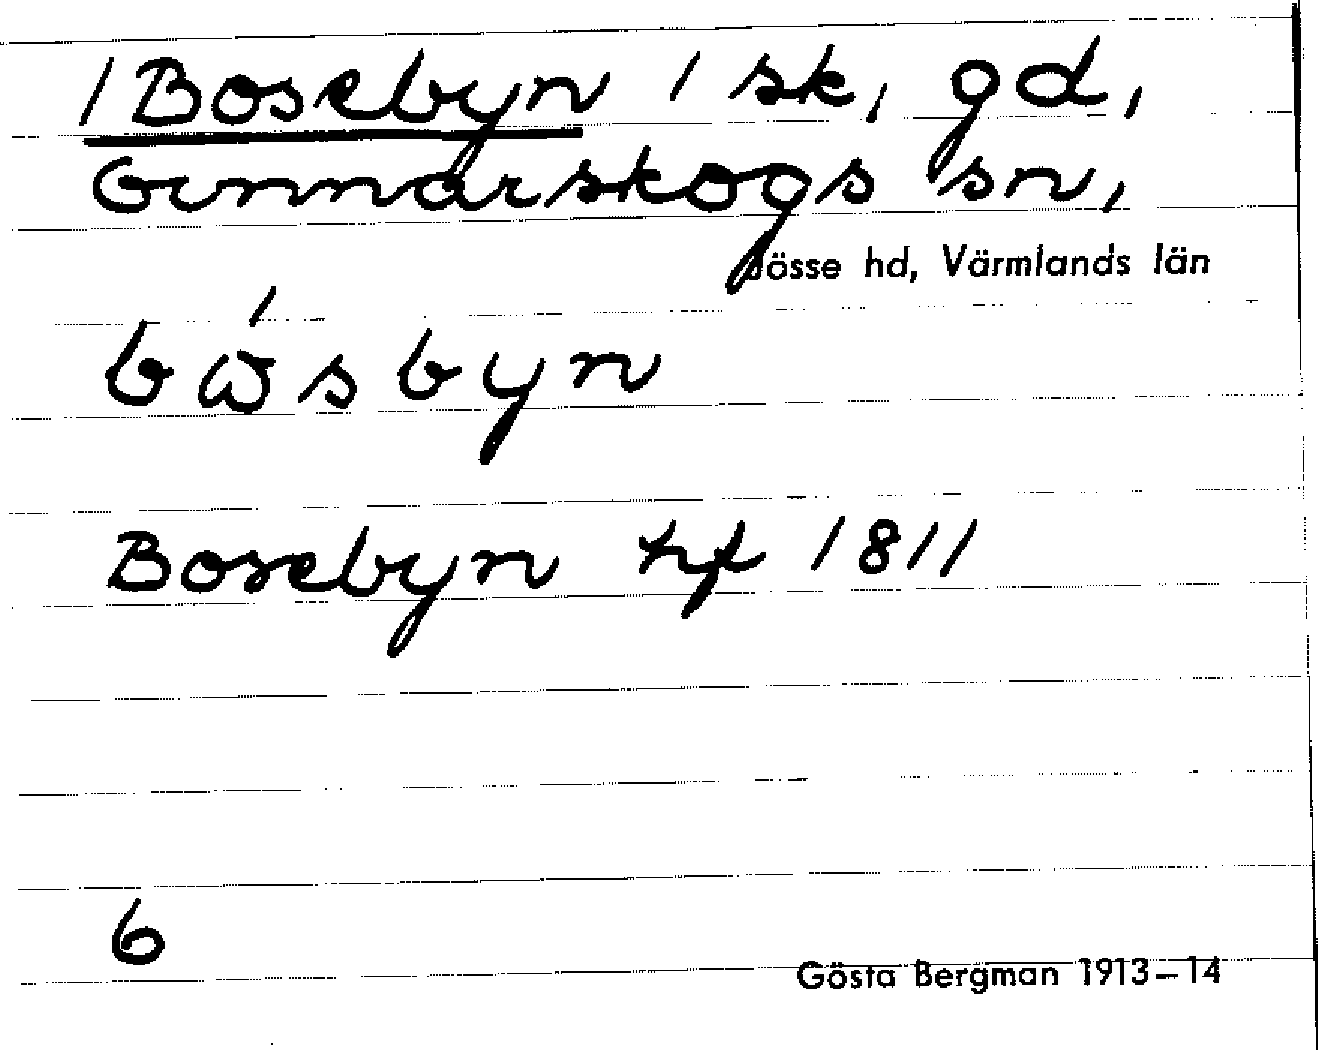 /Bosebyn / sk, gd,
Gunnarskogs sn,
Jösse hd, Värmlands län
bώsbyn
Bosebyn hf 1811
6
Gösta Bergman 1913–14